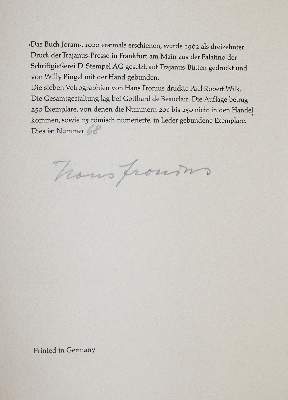 Das Buch Joram, 1920 vormals erschienen, wurde 1962 als dreizehnter
Druck der Trajanus-Presse in Frankfurt am Main aus der Palatino der
Schriftgießerei D. Stempel AG gesetzt, auf Trajanus-Bütten gedruckt und
von Willy Pingel mit der Hand gebunden.
Die sieben Vetrographien von Hans Fronius druckte Paul Robert Wilk.
Die Gesamtgestaltung lag bei Gotthard de Beauclair. Die Auflage betrug
250 Exemplare, von denen die Nummern 201 bis 250 nicht in den Handel
kommen, sowie 25 römisch numerierte, in Leder gebundene Exemplare.
Dies ist Nummer 68
Hans Fronius
Printed in Germany